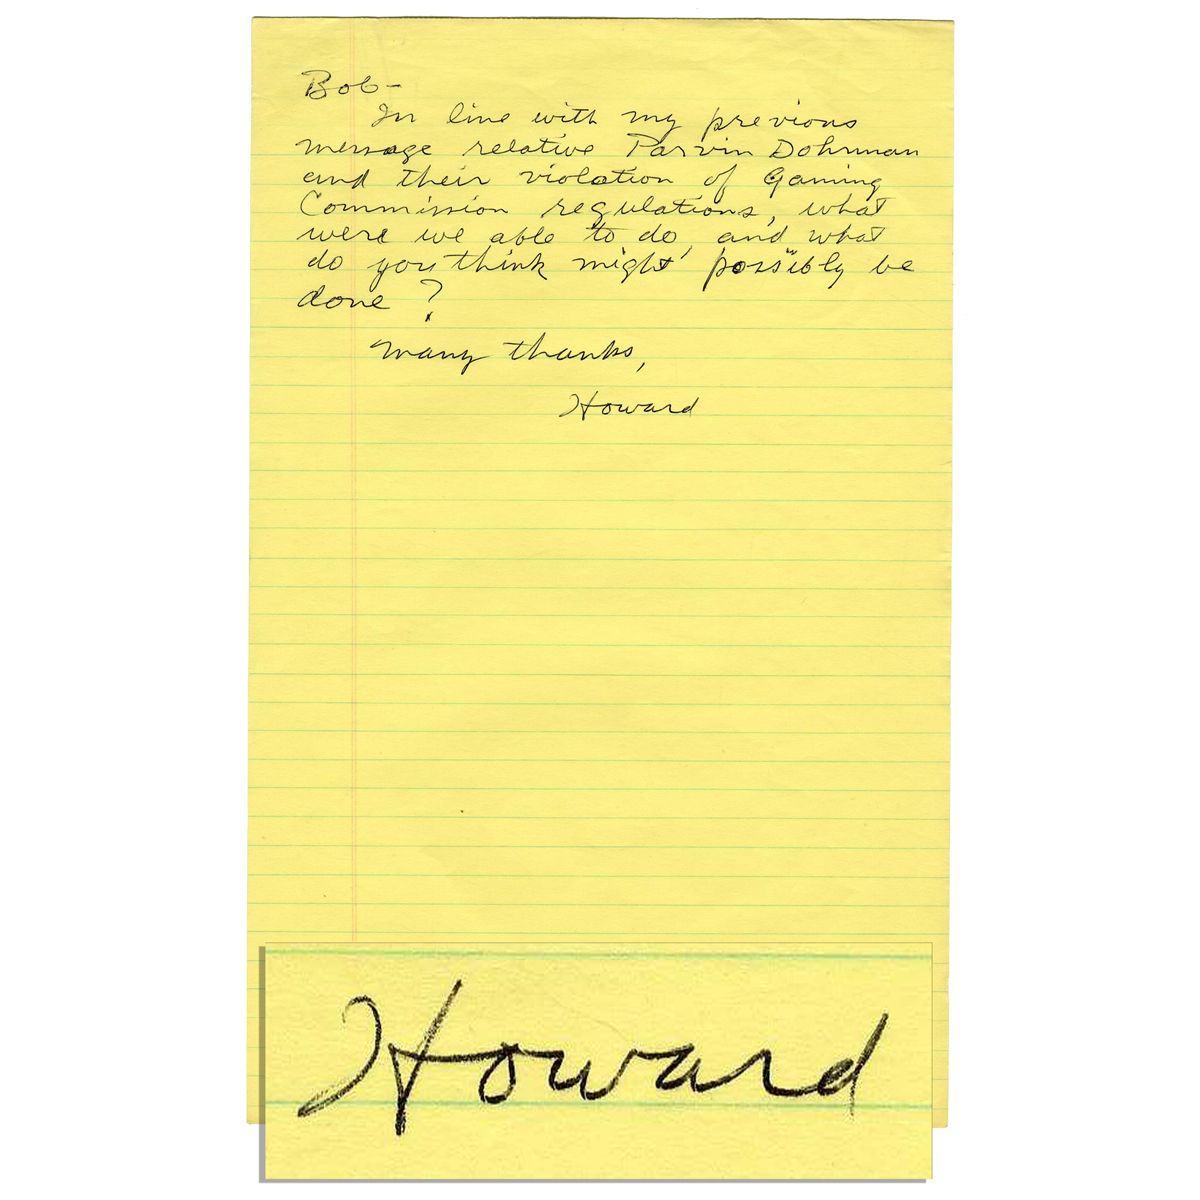 Bob-
In line with my previous
message relative Parvin Dohrman
and their violation of Gaming
Commission regulations, what
were we able to do, and what
do you think might possibly be
done?
Many thanks,
Howard
Howard